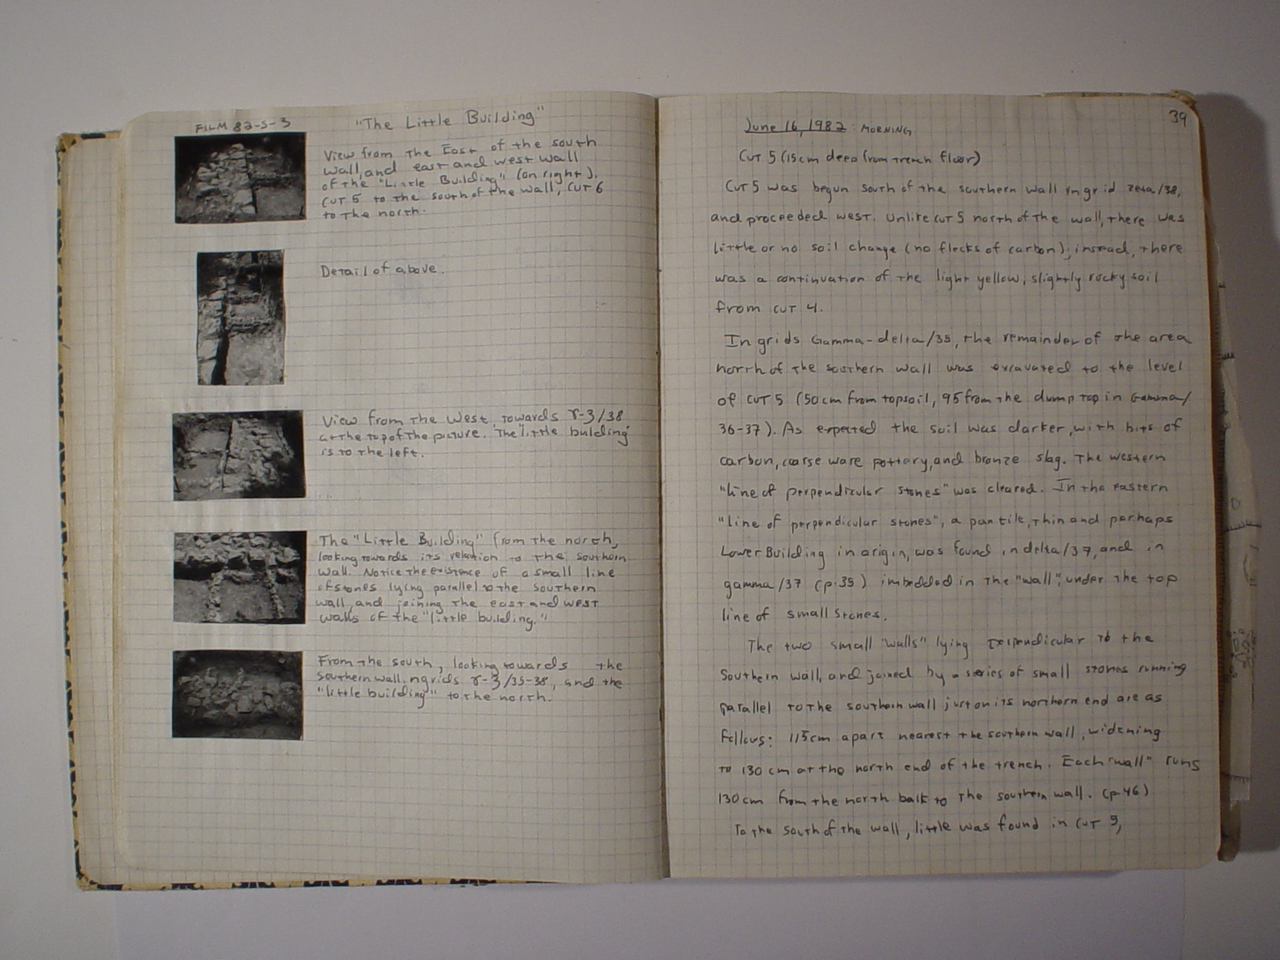 FILM 82-S-3
"The Little Building"
View from the East of the south
wall, and east and west wall
of the "Little Building" (on right),
CUT 5 to the south of the wall, CUT 6
to the north.
Detail of above.
View from the West towards γ-3/38
at the top of the picture. The "little building"
is to the left.
The "Little Building" from the north,
looking towards its relation to the southern
wall. Notice the existence of a small line
of stones lying parallel to the southern
wall, and joining the east and west
walls of the "little building."
From the south, looking towards the
southern wall in grids γ-3/35-38, and the
"little building" to the north.
39
June 16, 1982: MORNING
CUT 5 (15cm deep from trench floor)
CUT 5 was begun south of the southern wall in grid zeta/38,
and proceeded west. Unlike CUT 5 north of the wall, there was
little or no soil change (no flecks of carbon); instead, there
was a continuation of the light yellow, slightly rocky soil
from CUT 4.
In grids Gamma-delta/35, the remainder of the area
north of the southern wall was excavated to the level
of CUT 5 (50cm from topsoil, 95 from the dump top in Gamma/
36-37). As expected the soil was darker, with bits of
carbon, coarse ware pottery, and bronze slag. The western
"line of perpendicular stones" was cleared. In the eastern
"line of perpendicular stones", a pan tile, thin and perhaps
Lower Building in origin, was found in delta/37, and in
gamma/37 (p. 35) imbedded in the "wall", under the top
line of small stones.
The two small "walls" lying perpendicular to the
Southern wall, and joined by a series of small stones running
parallel to the southern wall just on its northern end are as
follows: 115cm apart nearest the southern wall, widening
to 130 cm at the north end of the trench. Each "wall" runs
130cm from the north balk to the southern wall. (p. 46)
To the south of the wall, little was found in CUT 5,